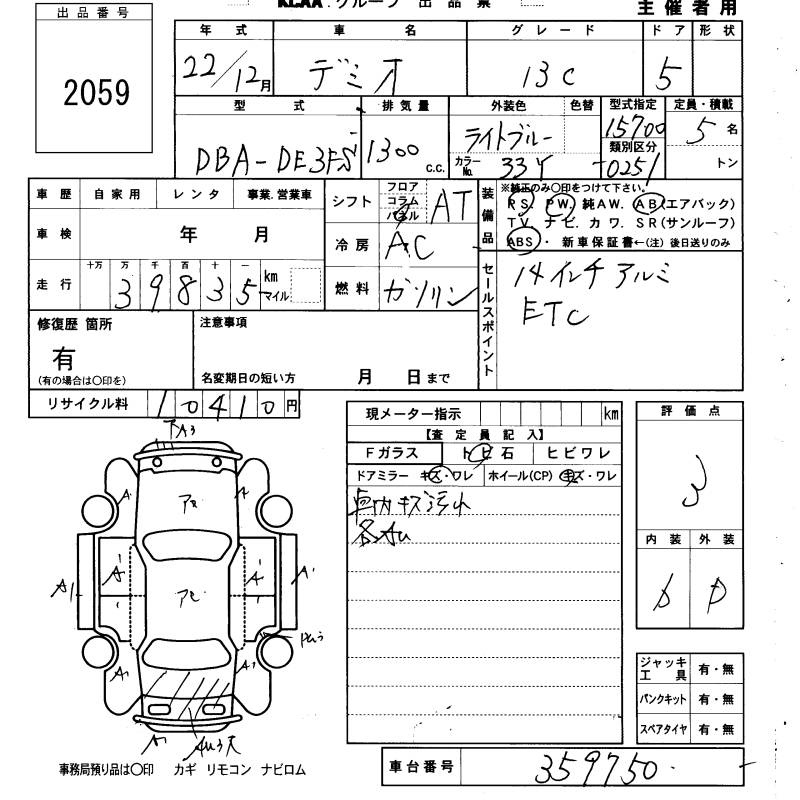 KCAA グループ 出品票
主催者用
出品番号
2059
年式 車名 グレード ドア 形状
22/12月 デミオ 13C 5
型式 排気量 外装色 色替 型式指定 定員・積載
DBA-DE3FS 1300 c.c. ライトブルー 15700 5名
カラーNo. 33Y 類別区分 0251 トン
車歴 自家用 レンタ 事業.営業車
シフト フロア コラム パネル AT
装備品 ※純正のみ〇印をつけて下さい。
PS. PW. 純AW. AB(エアバック)
TV. ナビ. カワ. SR(サンルーフ)
ABS・新車保証書←(注)後日送りのみ
車検 年 月
冷房 AC
走行 十万 万 千 百 十 一
39835 km マイル
燃料 ガソリン
セールスポイント
14インチアルミ
ETC
修復歴 箇所
有
(有の場合は〇印を)
注意事項
名変期日の短い方 月 日まで
リサイクル料 10410円
現メーター指示 km
【査定員記入】
Fガラス トビ石 ヒビワレ
ドアミラー キズ・ワレ ホイール(CP) キズ・ワレ
車内キズ汚れ
各AU
評価点
3
内装 外装
D D
ジャッキ工具 有・無
パンクキット 有・無
スペアタイヤ 有・無
事務局預り品は〇印 カギ リモコン ナビロム
車台番号 359750